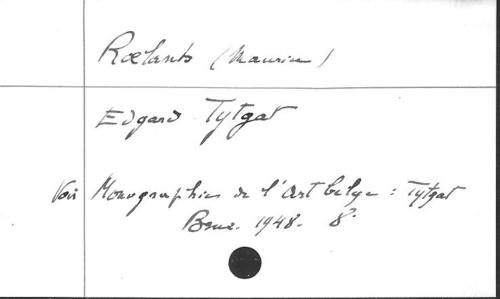 Roelants (Maurice)
Edgard Tytgat
Voir Monographies de l'Art belge : Tytgat
Brux. 1948. 8°